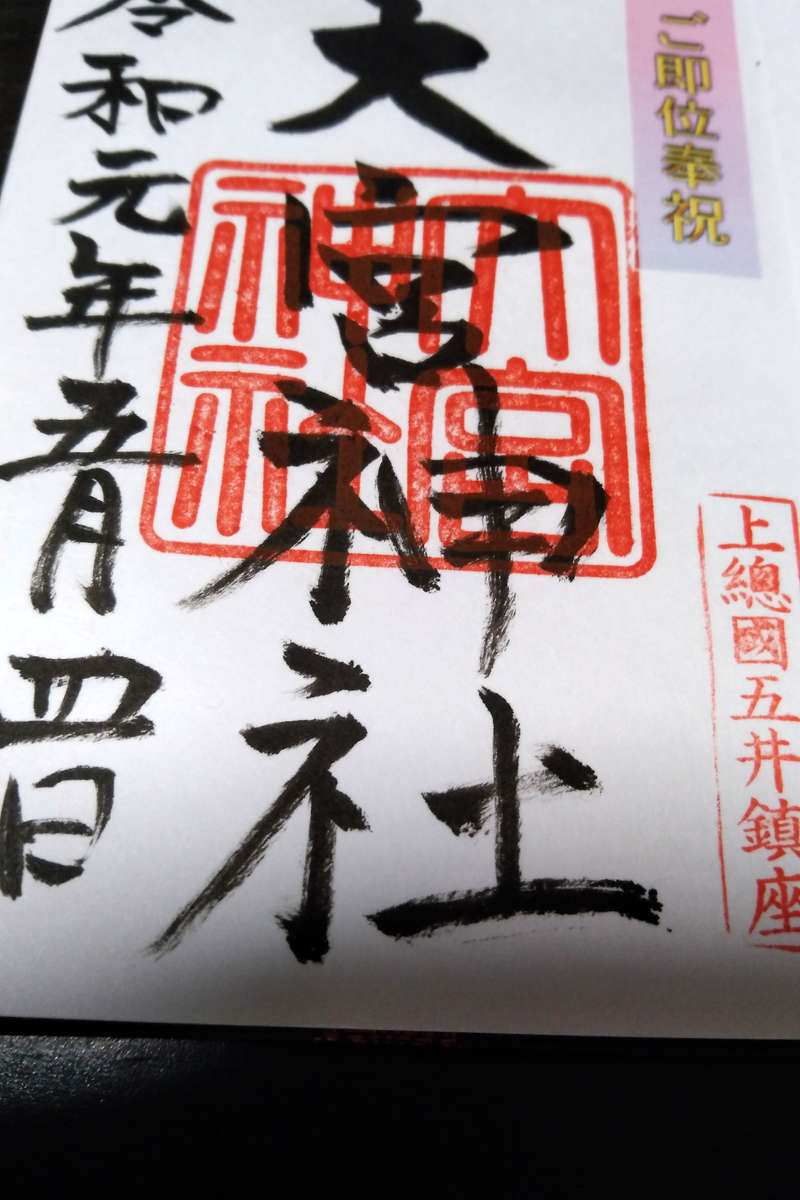 ご即位奉祝
上總國五井鎮座
大宮神社
大宮
神社
令和元年五月四日